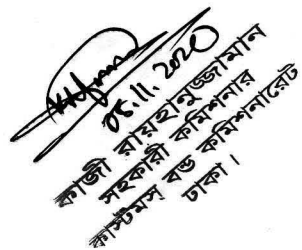 05.11.2020
কাজী রায়হানুজ্জামান
সহকারী কমিশনার
কাস্টমস বন্ড কমিশনারেট
ঢাকা।